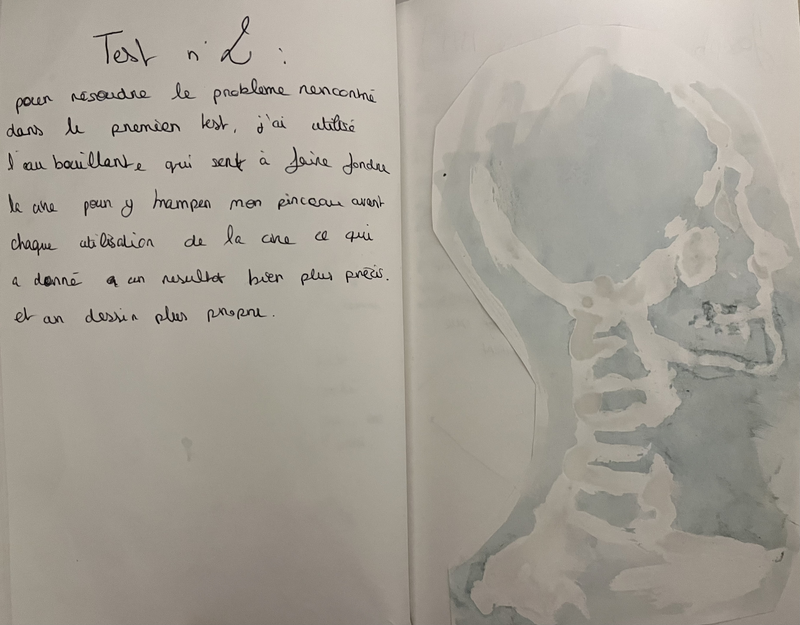 Test n°2 :
pour résoudre le problème rencontré
dans le premier test, j'ai utilisé
l'eau bouillante qui sert à faire fondre
la cire pour y tremper mon pinceau avant
chaque utilisation de la cire ce qui
a donné a un resultat bien plus précis.
et un dessin plus propre.